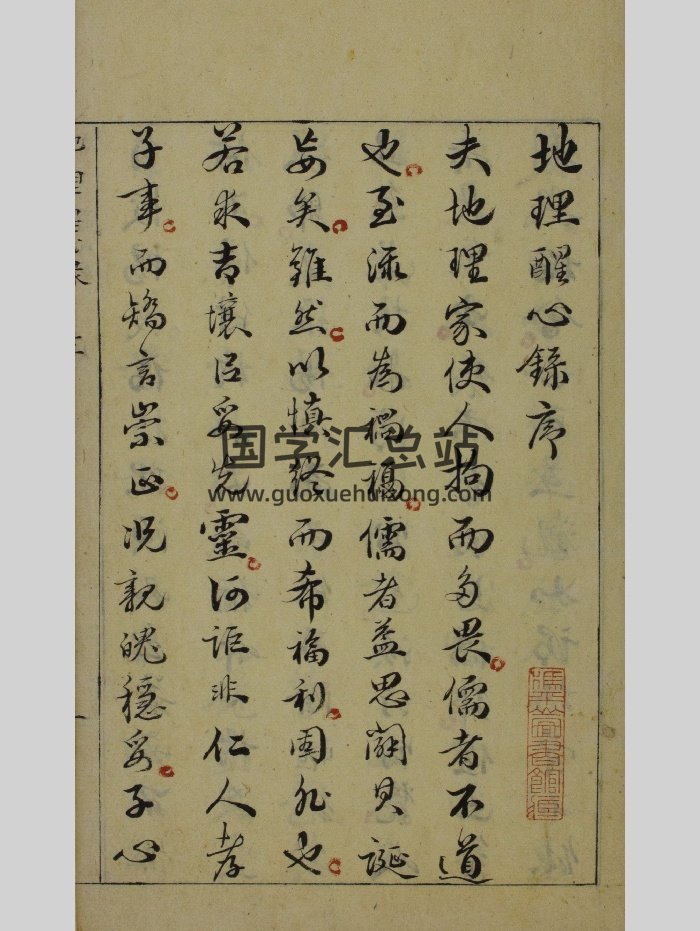 地理醒心錄序
夫地理家使人拘而多畏儒者不道
也至而為儒者益思闢其誕
妄矣雖然以慎終而希福利固非也
若求吉壤以妥先靈何詎非仁人孝
子事而矯言崇正況親魄穩妥子心
国学汇总站
www.guoxuehuizong.com